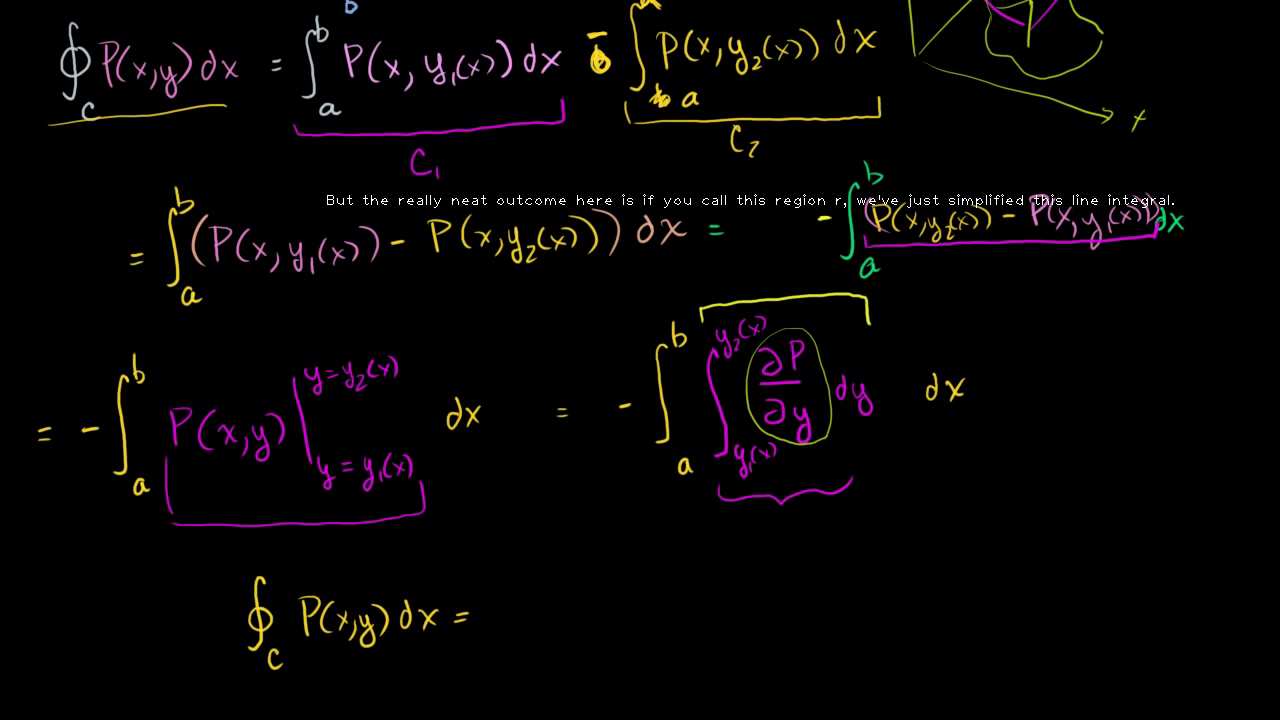 b
∮_C P(x,y) dx = ∫_a^b P(x, y₁(x)) dx - ∫_a P(x, y₂(x)) dx
C₁
C₂
x
But the really neat outcome here is if you call this region r, we've just simplified this line integral.
= ∫_a^b (P(x, y₁(x)) - P(x, y₂(x))) dx = -∫_a^b (P(x, y₂(x)) - P(x, y₁(x))) dx
= -∫_a^b P(x,y) |_{y = y₁(x)}^{y = y₂(x)} dx = -∫_a^b ∫_{y₁(x)}^{y₂(x)} ∂P/∂y dy dx
∮_C P(x,y) dx =